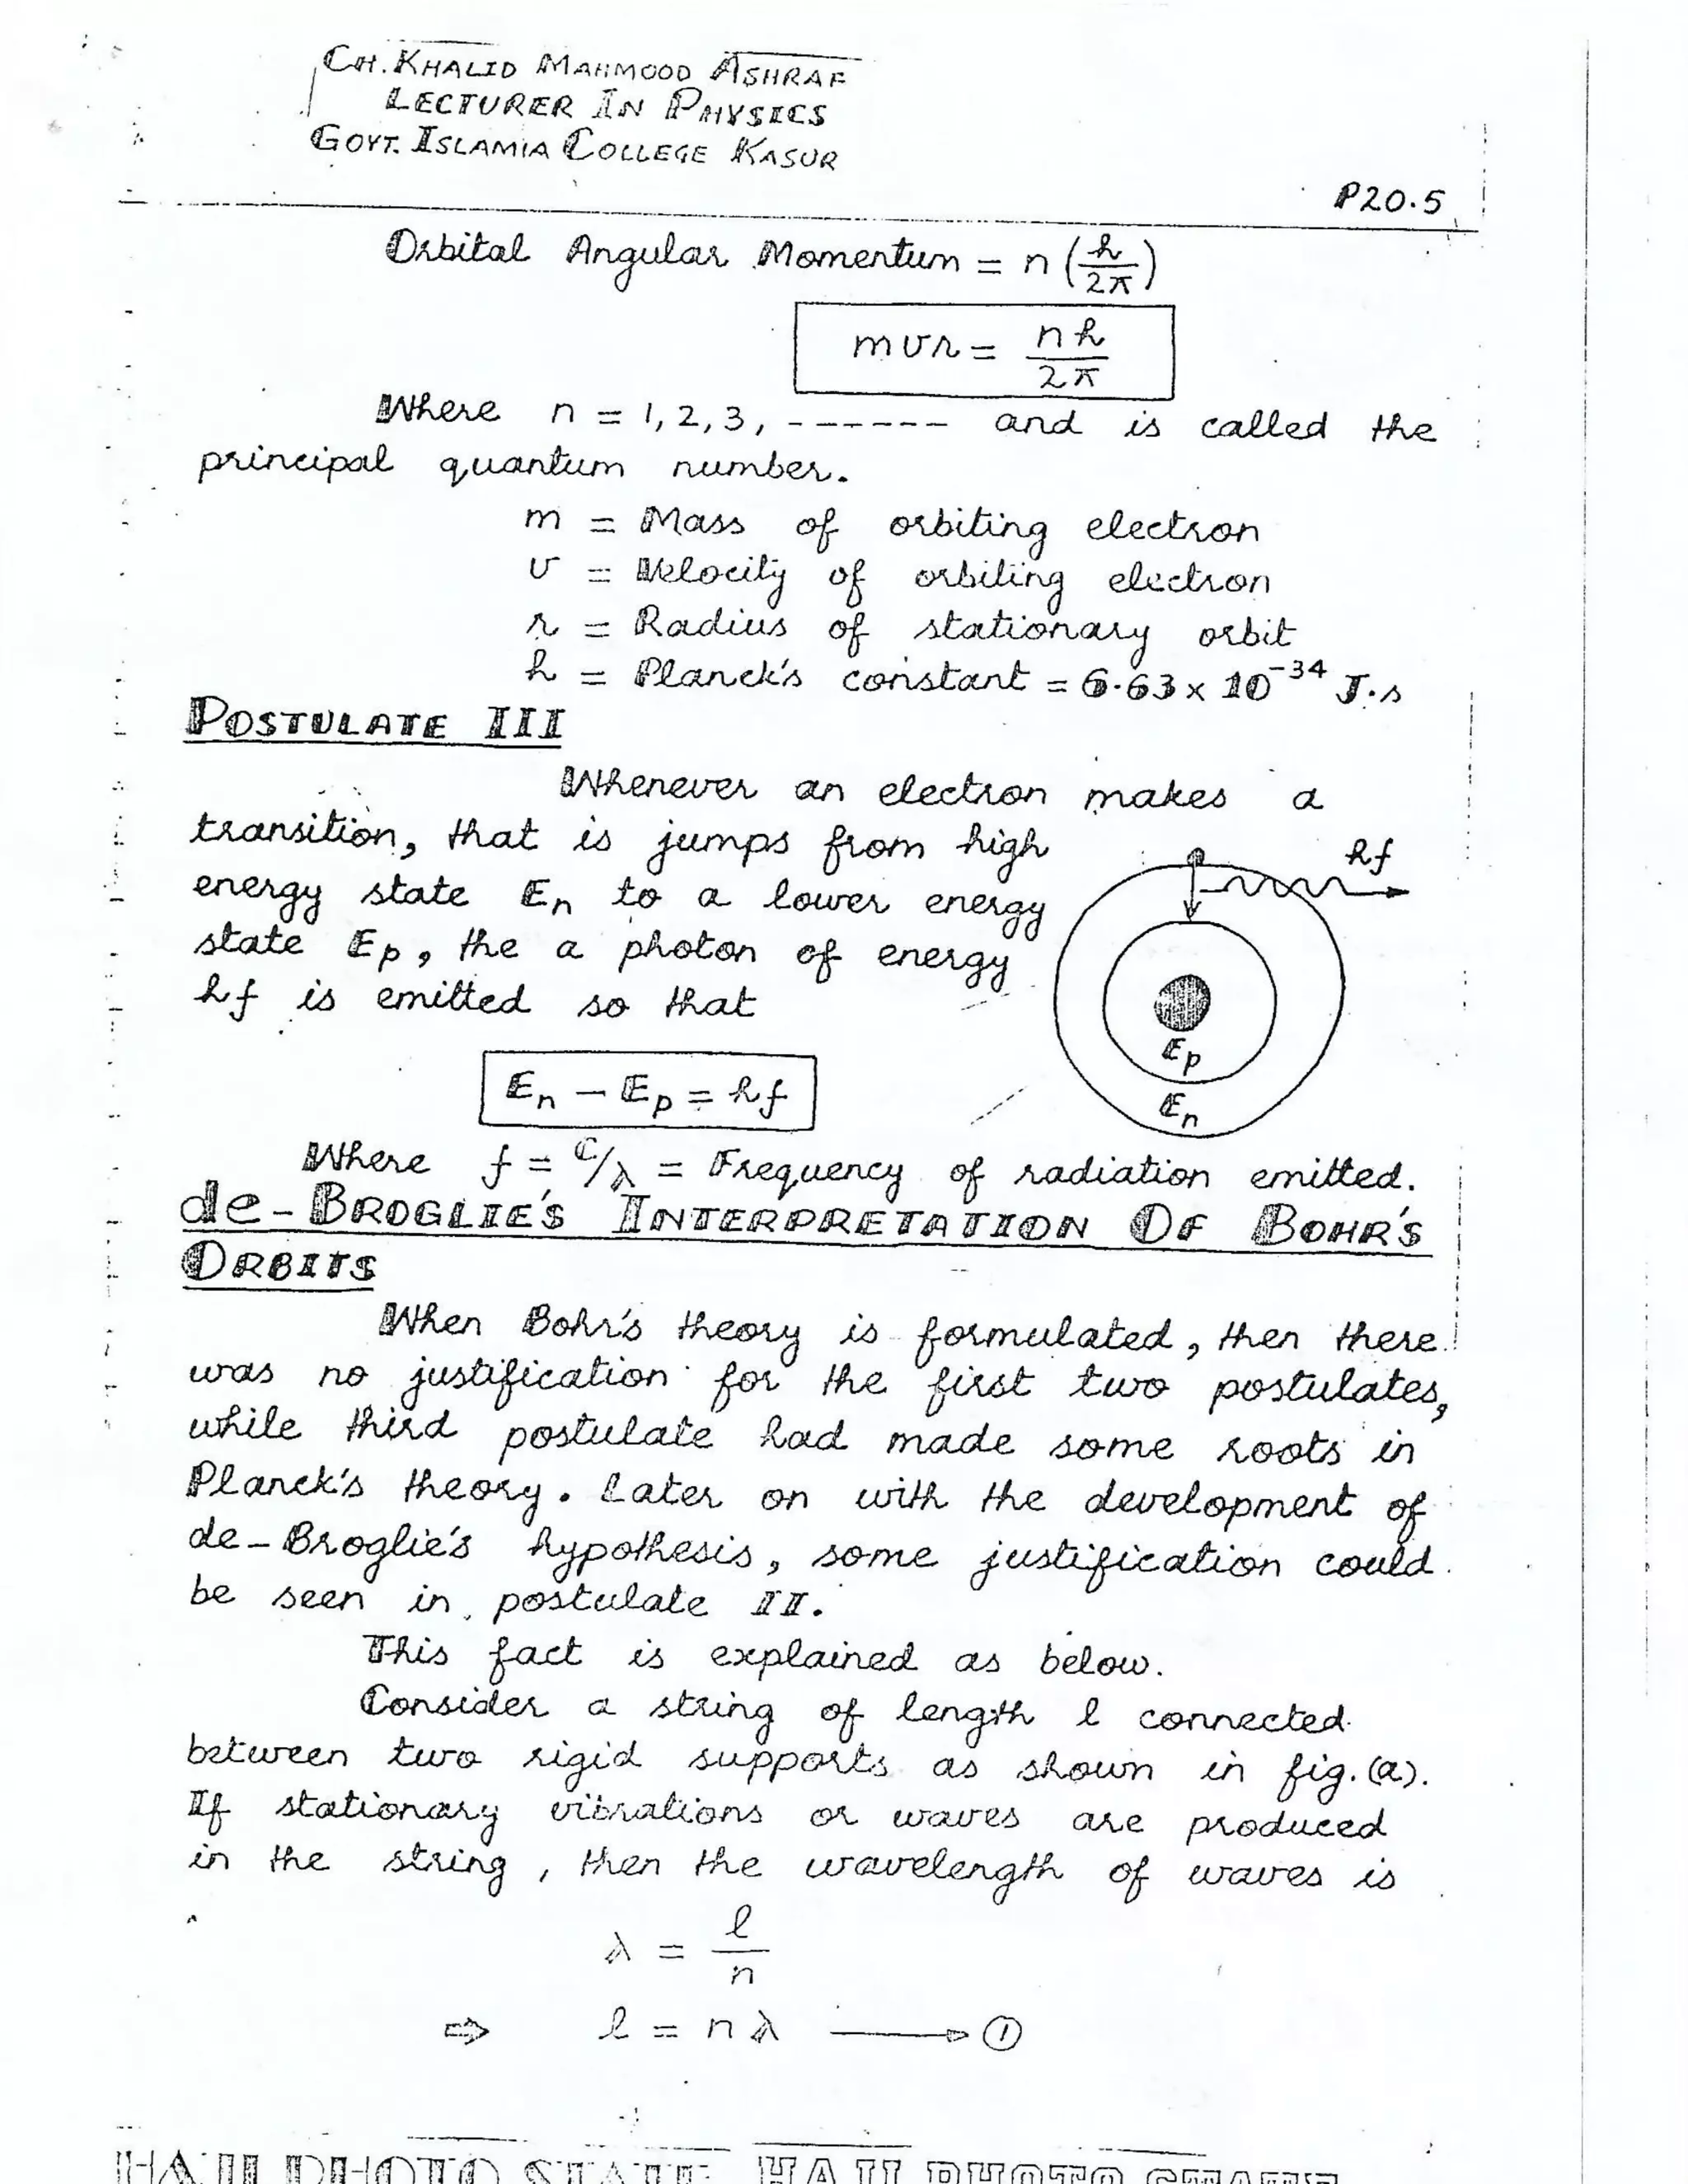 CH. KHALID MAHMOOD ASHRAF
LECTURER IN PHYSICS
GOVT. ISLAMIA COLLEGE KASUR
P20.5
Orbital Angular Momentum = n (h/2π)
mvr = nh/2π
Where n = 1, 2, 3, ------ and is called the
principal quantum number.
m = Mass of orbiting electron
v = Velocity of orbiting electron
r = Radius of stationary orbit
h = Planck's constant = 6.63 x 10⁻³⁴ J.s
POSTULATE III
Whenever an electron makes a
transition, that is jumps from high
energy state Eₙ to a lower energy
state Eₚ, the a photon of energy
hf is emitted so that
hf
Eₚ
Eₙ
Eₙ − Eₚ = hf
Where f = C/λ = Frequency of radiation emitted.
de-BROGLIE'S INTERPRETATION OF BOHR'S
ORBITS
When Bohr's theory is formulated, then there
was no justification for the first two postulates,
while third postulate had made some roots in
Planck's theory. Later on with the development of
de-Broglie's hypothesis, some justification could
be seen in postulate II.
This fact is explained as below.
Consider a string of length l connected
between two rigid supports as shown in fig.(a).
If stationary vibrations or waves are produced
in the string, then the wavelength of waves is
λ = l/n
⇒ l = nλ → ①
HAJI PHOTO STATE HAJI PHOTO STATE